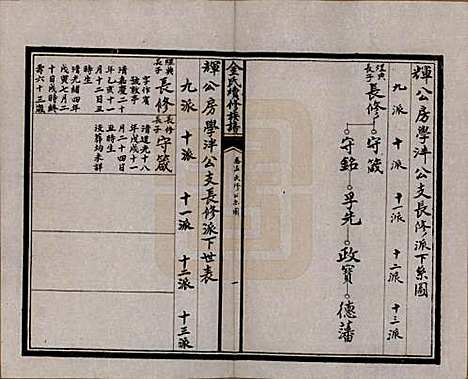 輝公房學泮公支長修派下系圖
九派 十派 十一派 十二派 十三派
煜典長子 長修 守箴
守銘 孚先 政寶 德藩
金氏續修族譜
卷五 長修公系圖 一
輝公房學泮公支長修派下世表
九派 十派 十一派 十二派 十三派
長子 長修
字作甯
號敦亭
清嘉慶二十
年乙亥十一
月十二日丑
時生
清光緒四年
戊寅七月二
十日戌時終
壽六十三歲
長修長子 守箴
清道光十八
年戊戌十一
月二十四日
丑時生
沒葬均未詳